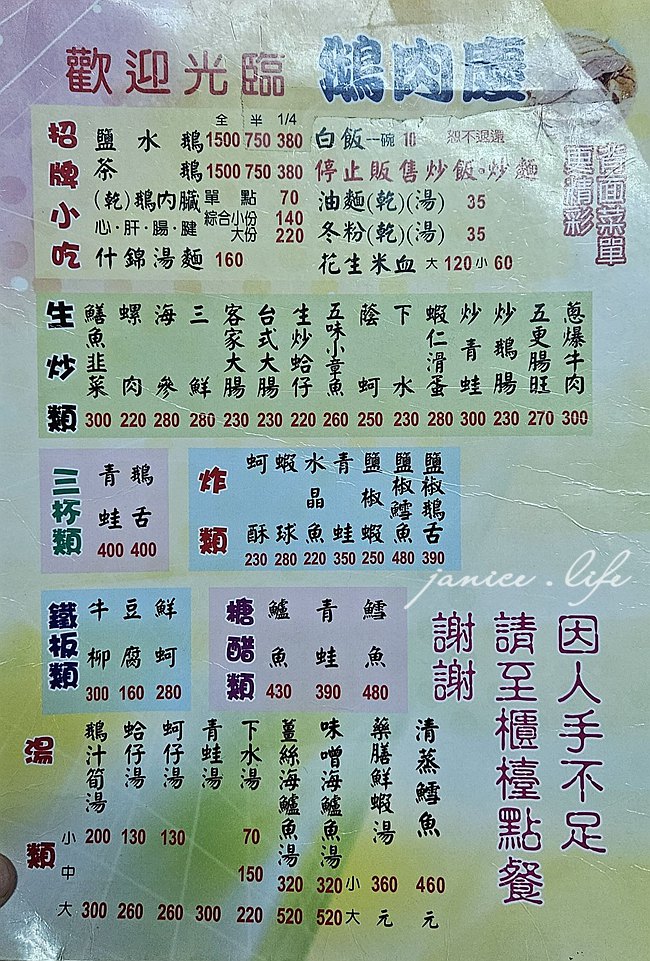 歡迎光臨 鵝肉慶
招牌小吃
全 半 1/4
鹽水鵝 1500 750 380
茶鵝 1500 750 380
(乾)鵝內臟 單點 70
心·肝·腸·腱 綜合小份 140
大份 220
什錦湯麵 160
白飯一碗 10 恕不退還
停止販售炒飯。炒麵
油麵(乾)(湯) 35
冬粉(乾)(湯) 35
花生米血 大120 小60
背面菜單
更精彩
生炒類
鱔魚韭菜 300
螺肉 220
海參 280
三鮮 280
客家大腸 230
台式大腸 230
生炒蛤仔 220
五味小章魚 260
蔭蚵 250
下水 230
蝦仁滑蛋 280
炒青蛙 300
炒鵝腸 230
五更腸旺 270
蔥爆牛肉 300
三杯類
青蛙 400
鵝舌 400
炸類
蚵酥 230
蝦球 280
水晶魚 220
青蛙 350
鹽椒蝦 250
鹽椒鱈魚 480
鹽椒鵝舌 390
janice.life
鐵板類
牛柳 300
豆腐 160
鮮蚵 280
糖醋類
鱸魚 430
青蛙 390
鱈魚 480
湯類
小 中 大
鵝汁筍湯 200 300
蛤仔湯 130 260
蚵仔湯 130 260
青蛙湯 300
下水湯 70 150 220
薑絲海鱸魚湯 320 520
味噌海鱸魚湯 320 520
小 大
藥膳鮮蝦湯 360元
清蒸鱈魚 460元
因人手不足
請至櫃檯點餐
謝謝